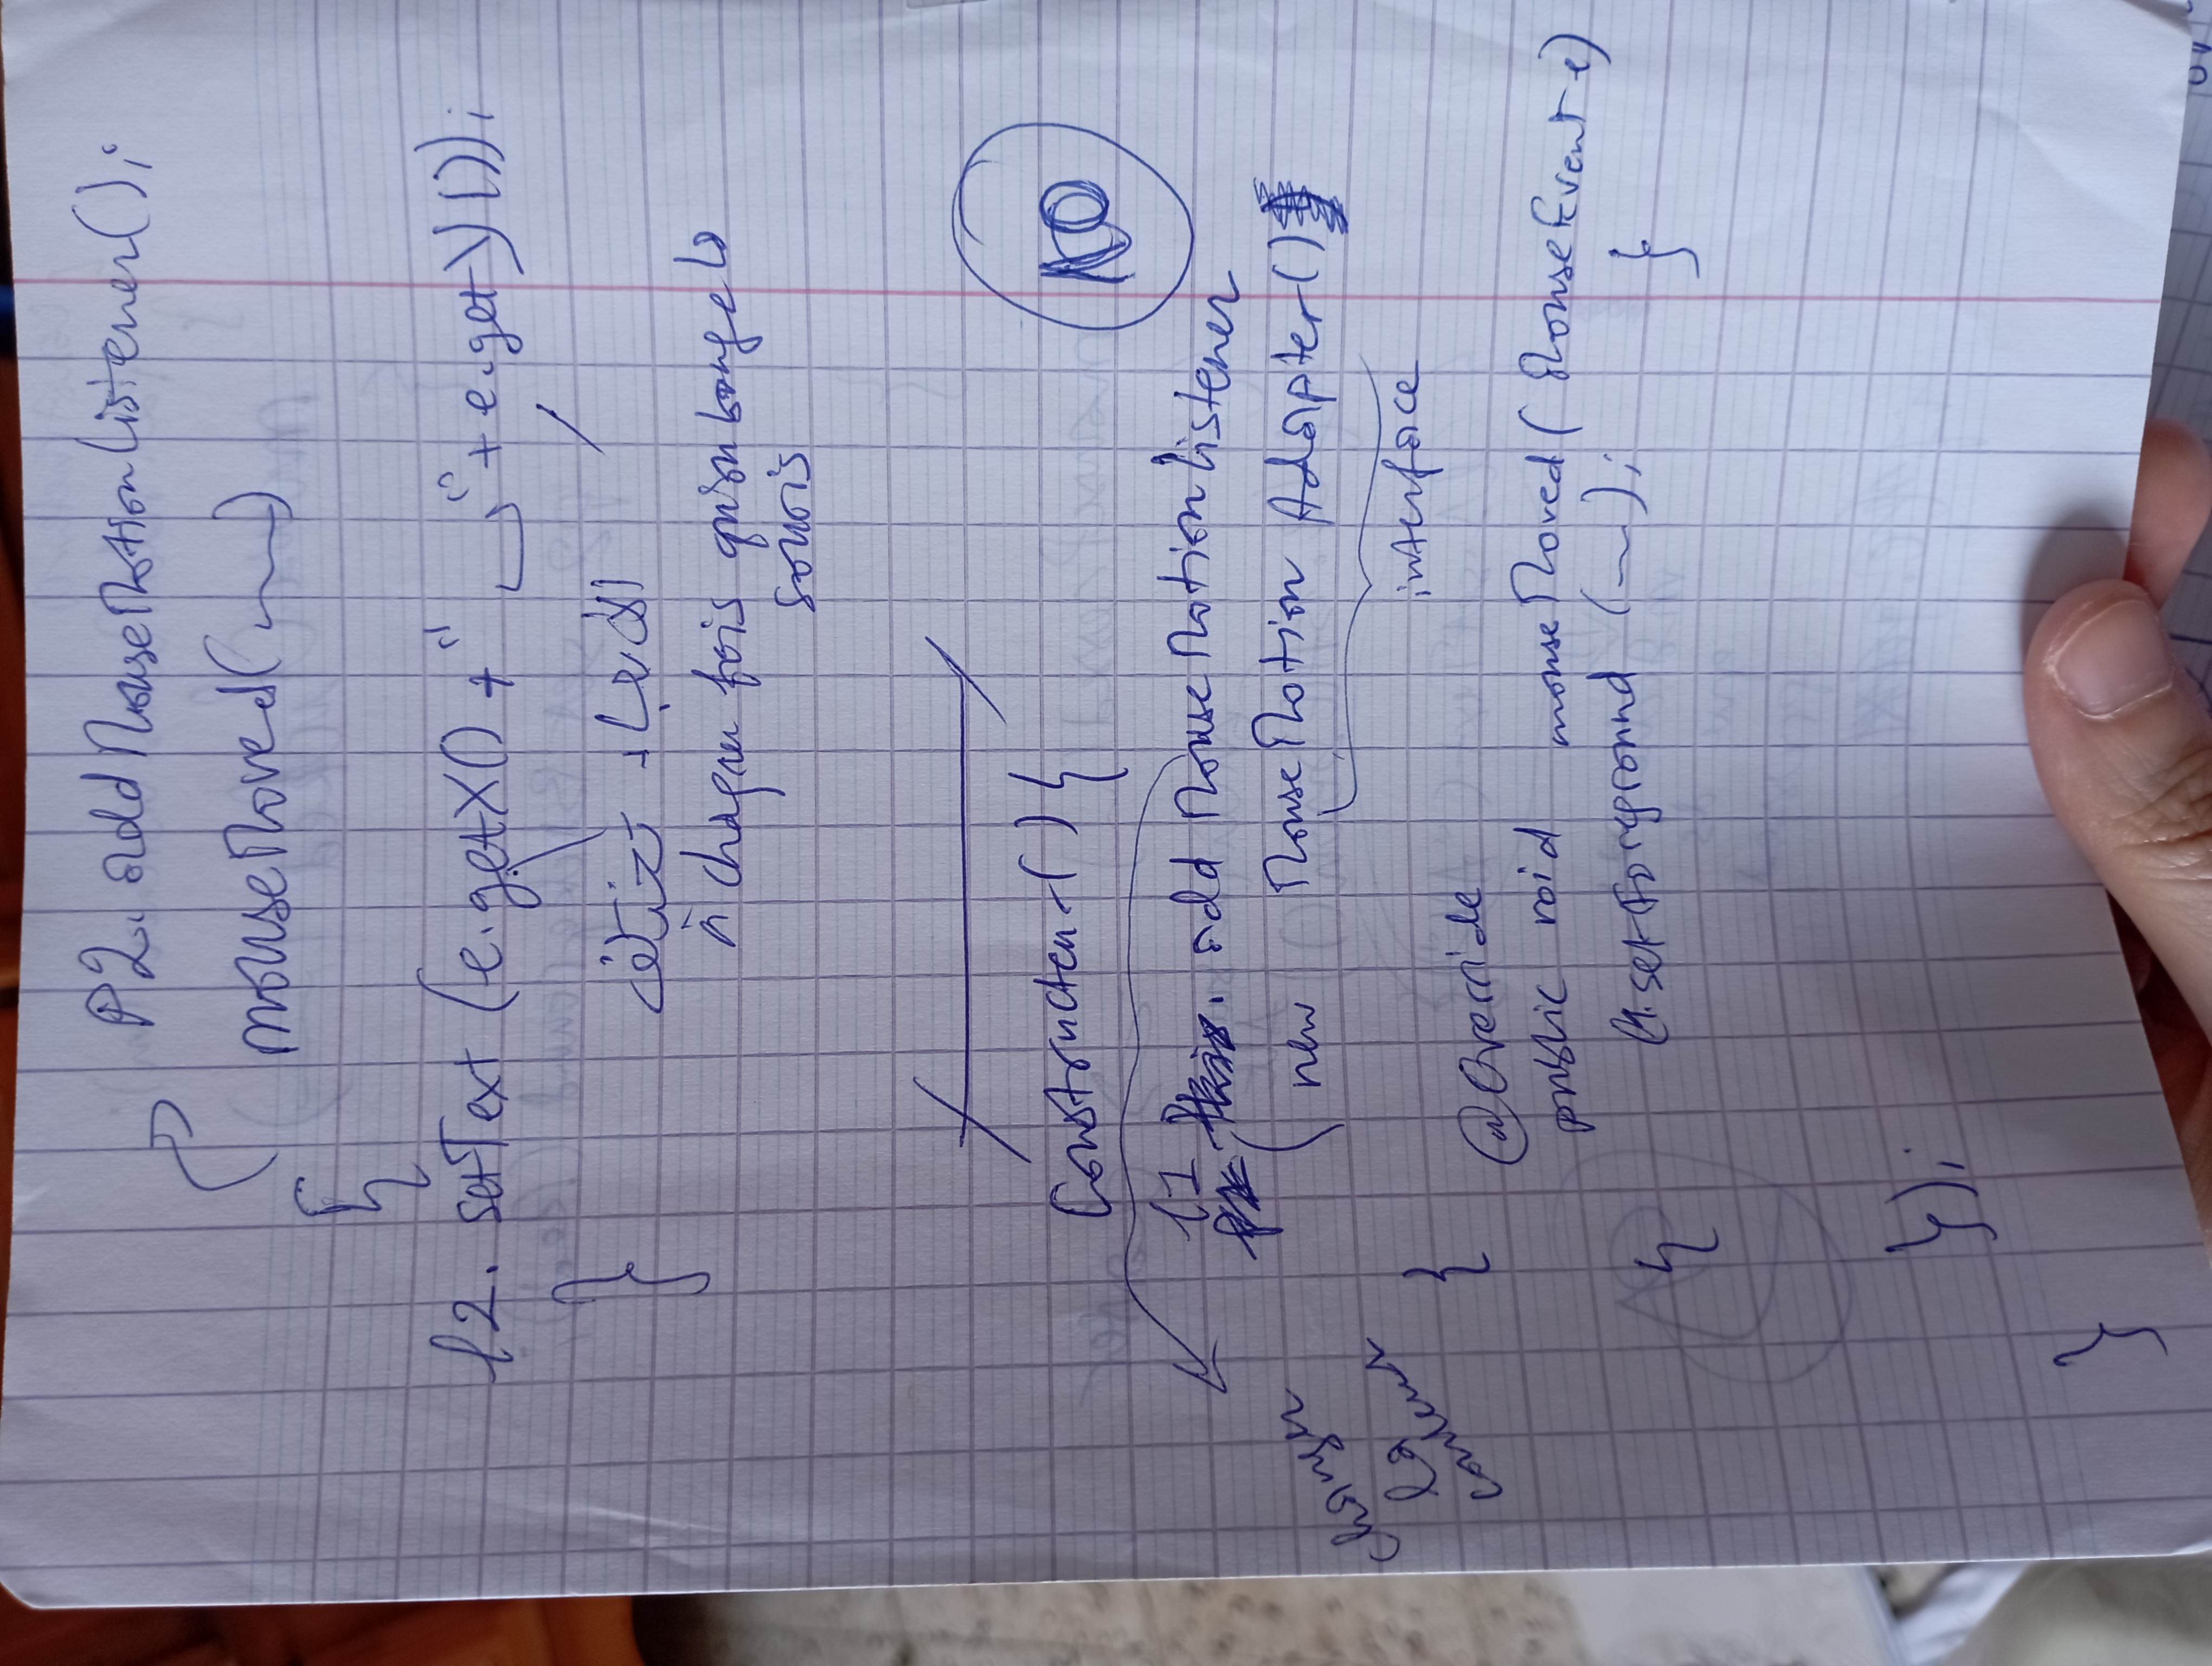 P2. addMouseMotionListener();
mouseMoved(~~)
{
l2. setText (e.getX() + " , " + e.getY());
}
الأبعاد تختلف
à chaque fois qu'on bouge la
souris
Constructeur() {
10
l1 . addMouseMotionListener
( new MouseMotionAdapter()
interface
changer
la
couleur
{
@Override
public void mouseMoved( MouseEvent e)
{ l1.setForeground (~~); }
});
}